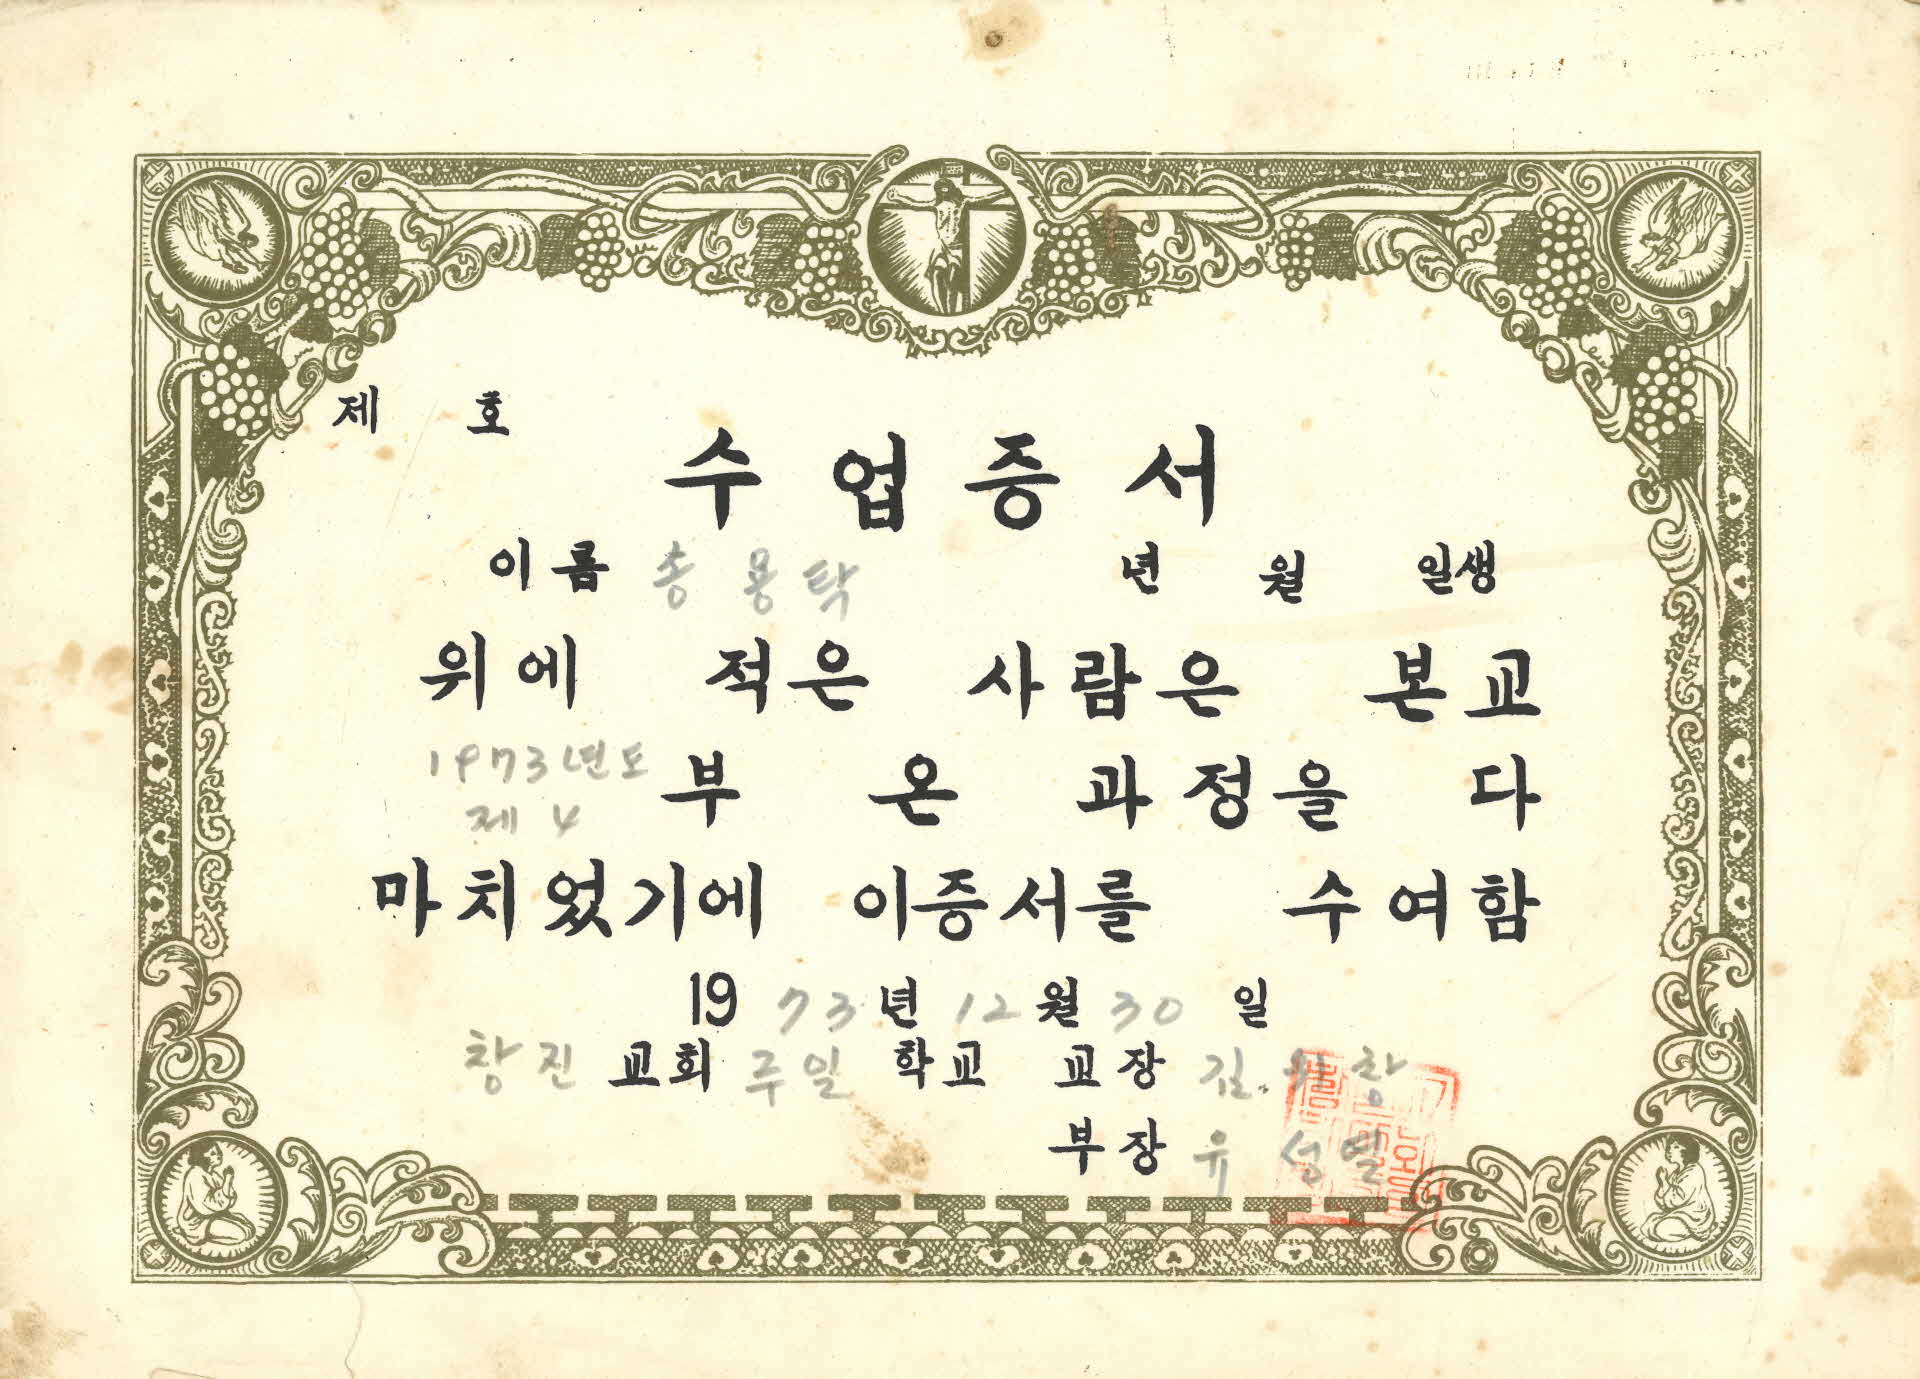 제 호
수업증서
이름 송용탁 년 월 일생
위에 적은 사람은 본교
1973년도
제4 부 온 과정을 다
마치었기에 이증서를 수여함
1973년 12월 30일
창진 교회 주일 학교 교장 김 창
부장 유성열